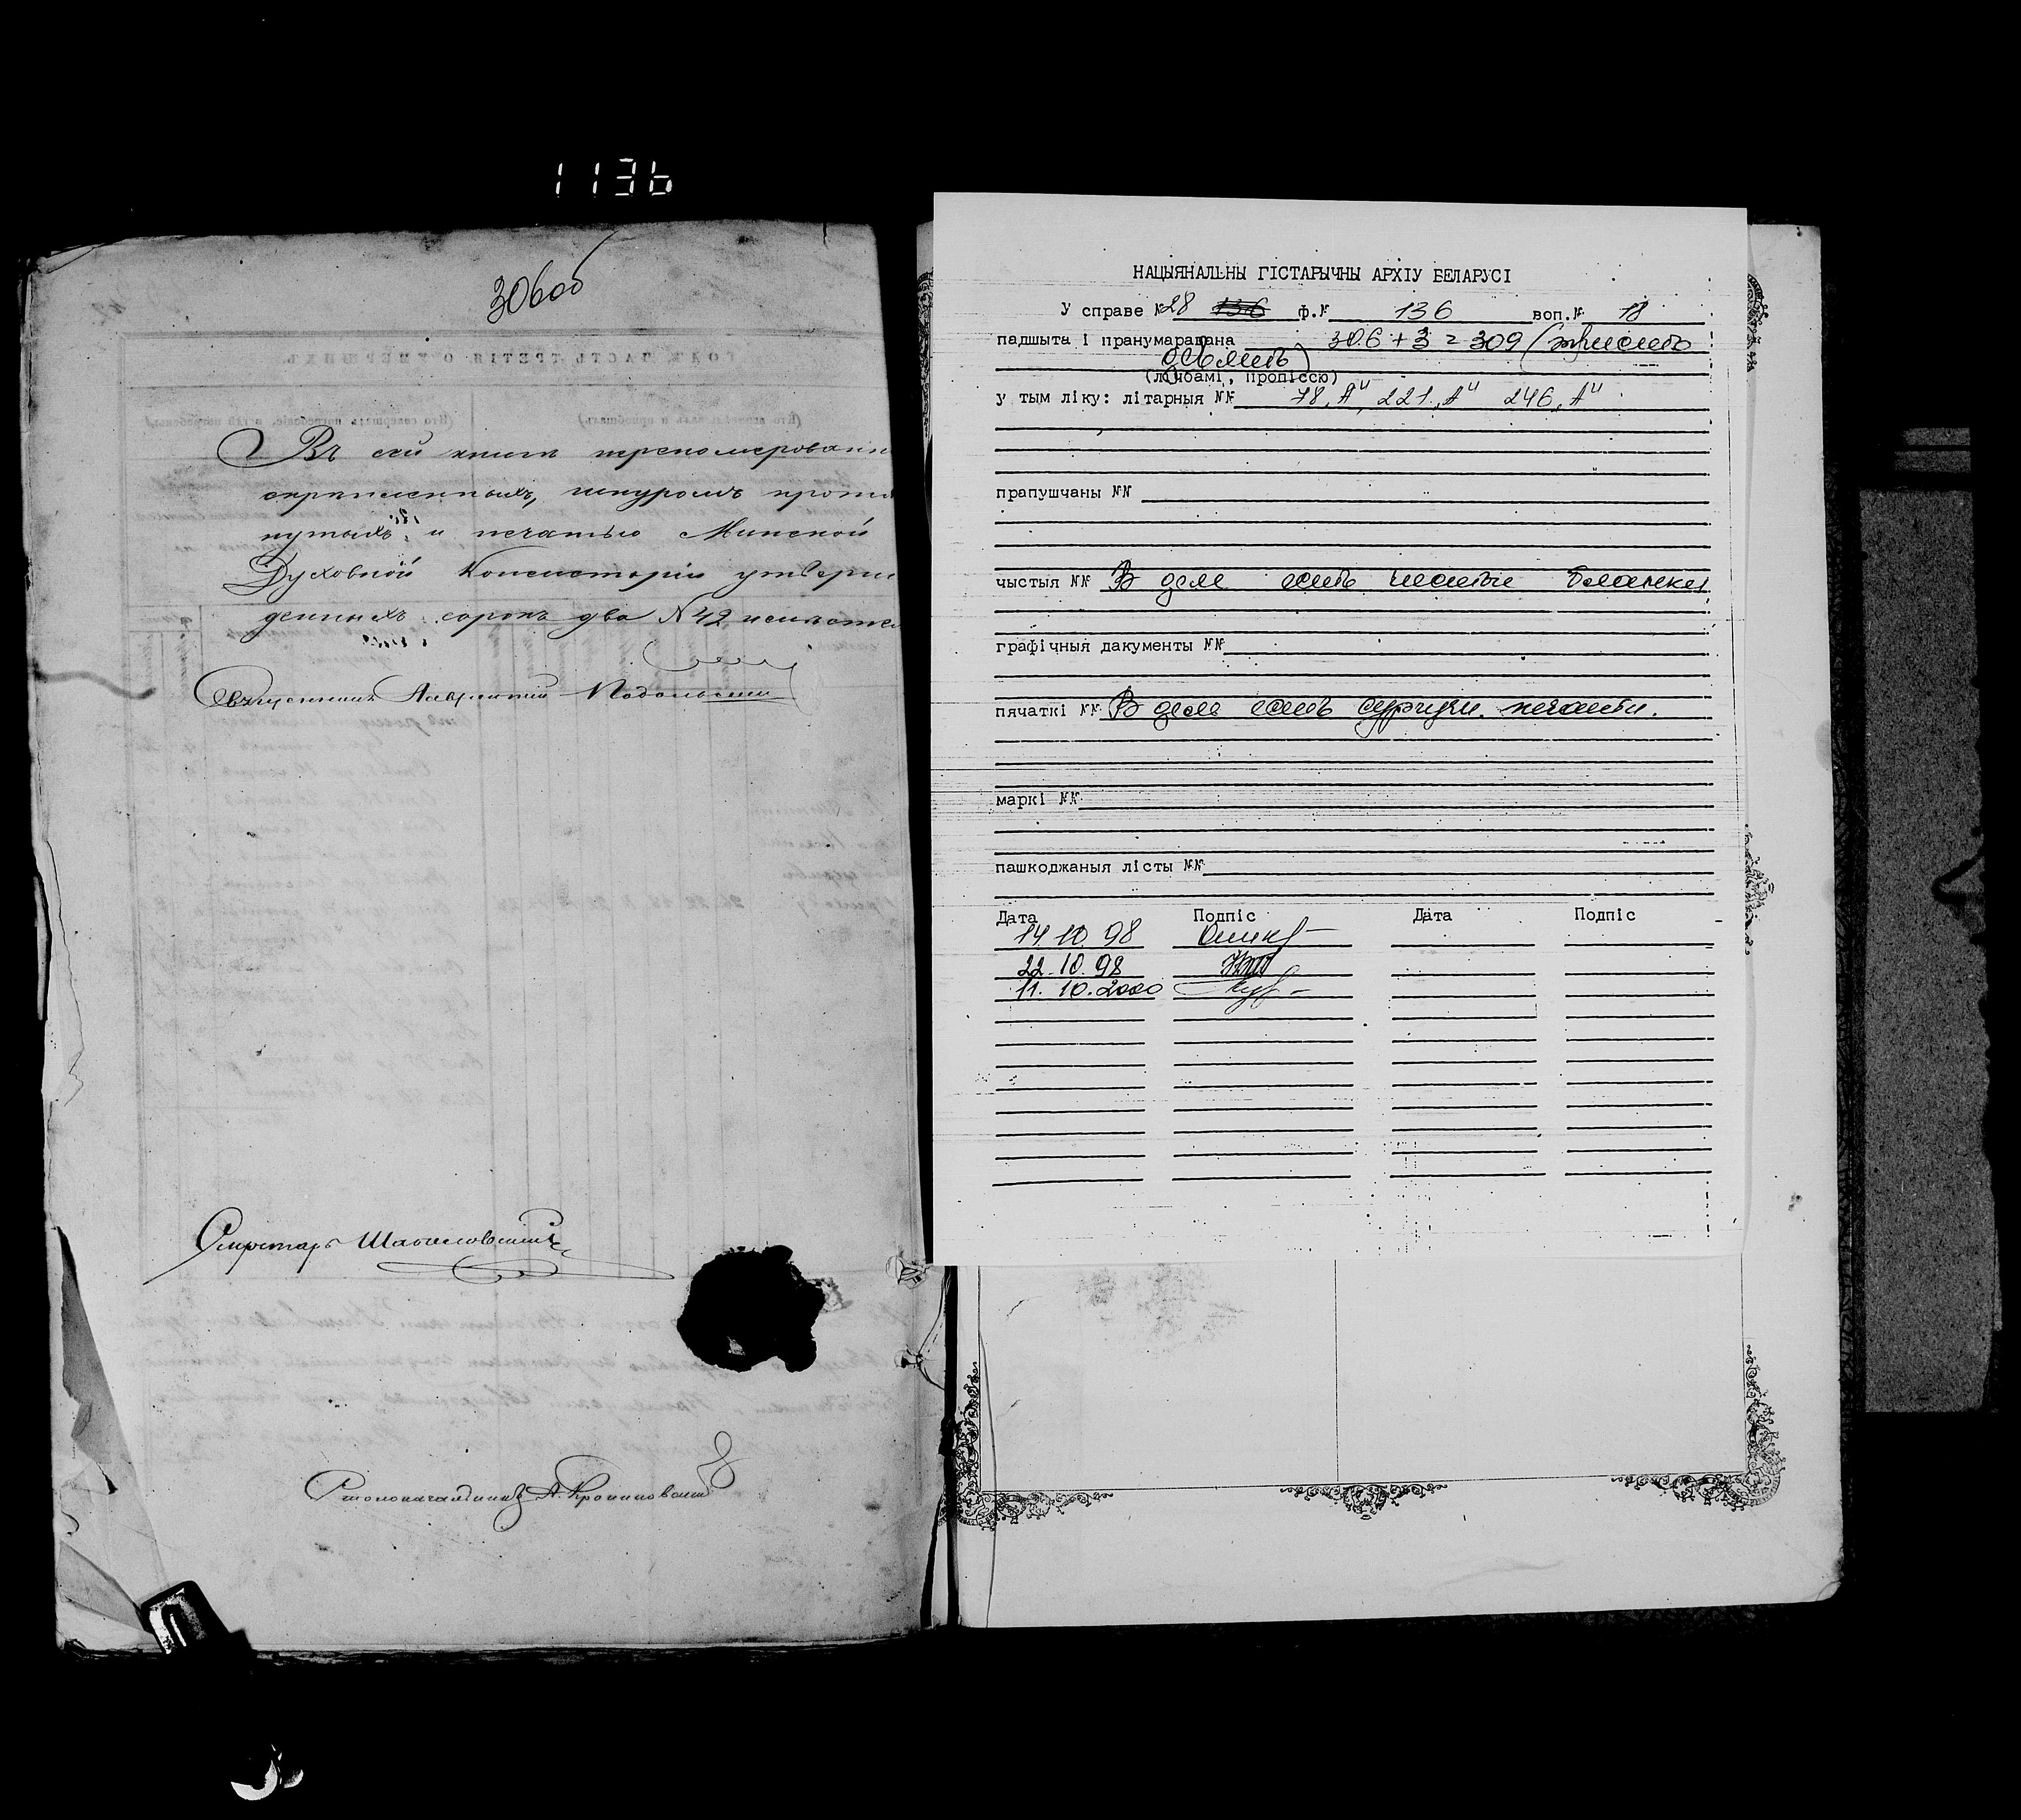 1136
306об
ГОДЪ, ЧАСТЬ ТРЕТІЯ О УМЕРШИХЪ
Въ сей книгѣ перенумерованн
скрепленныхъ, шнуромъ протя
нутыхъ и печатью Минской
Духовной Консисторіи утверж
денныхъ сорокъ два № 42 
Священникъ Лаврентій Подольскій
Секретарь
Столоначальникъ А.
НАЦЫЯНАЛЬНЫ ГІСТАРЫЧНЫ АРХІУ БЕЛАРУСІ
У справе № 28 136 ф.№ 136 воп.№ 18
падшыта і пранумаравана 306 + 3 = 309 (триста
девять)
(лічбамі, пропіссю)
у тым ліку: літарныя №№ 78„А“, 221„А“ 246„А“
прапушчаны №№
чыстыя №№ В деле есть чистые бланки
графічныя дакументы №№
пячаткі №№ В деле есть сургучн. печати.
маркі №№
пашкоджаныя лісты №№
Дата Подпіс Дата Подпіс
14.10.98
22.10.98
11.10.2000